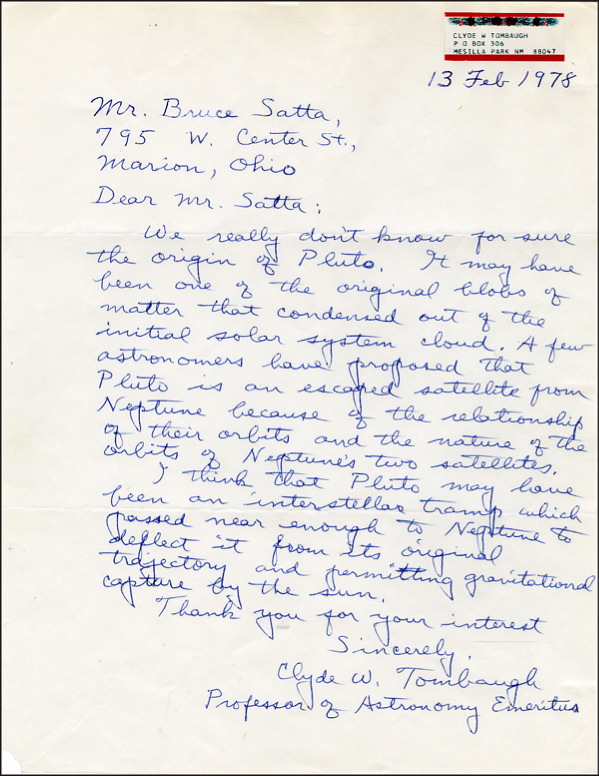 CLYDE W TOMBAUGH
P O BOX 306
MESILLA PARK NM 88047
13 Feb 1978
Mr. Bruce Satta,
795 W. Center St.,
Marion, Ohio
Dear Mr. Satta:
We really don't know for sure
the origin of Pluto. It may have
been one of the original blobs of
matter that condensed out of the
initial solar system cloud. A few
astronomers have proposed that
Pluto is an escaped satellite from
Neptune because of the relationship
of their orbits and the nature of the
orbits of Neptune's two satellites.
I think that Pluto may have
been an interstellar tramp which
passed near enough to Neptune to
deflect it from its original
trajectory and permitting gravitational
capture by the sun.
Thank you for your interest
Sincerely,
Clyde W. Tombaugh
Professor of Astronomy Emeritus